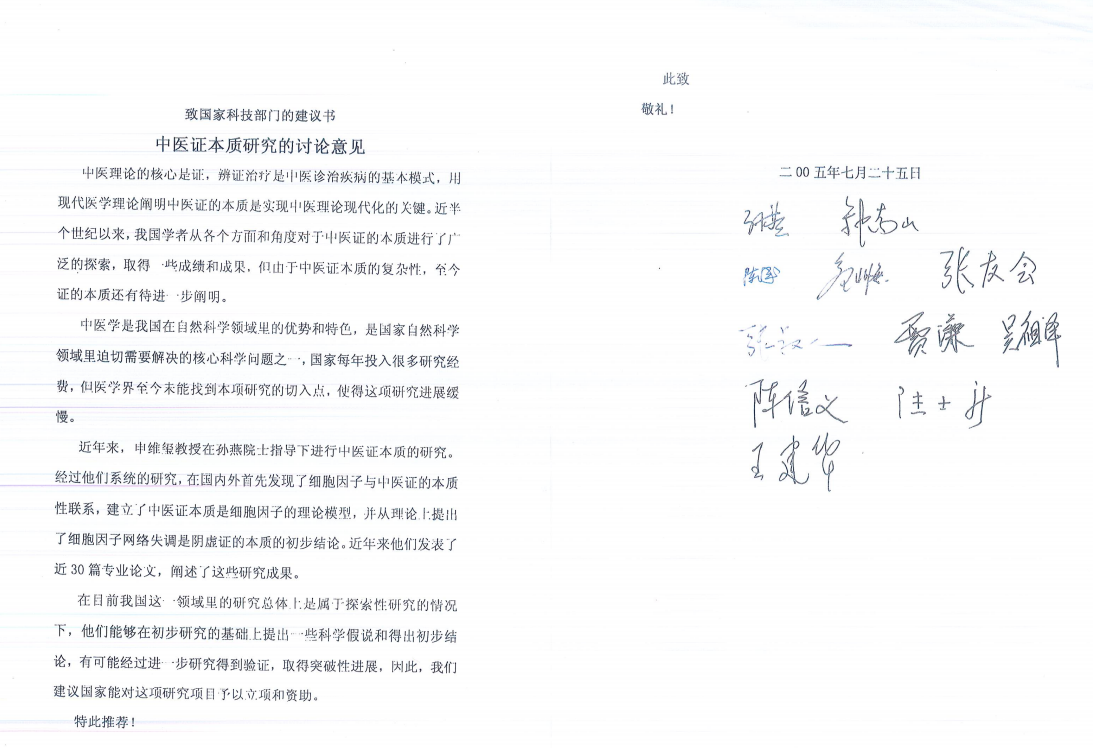 致国家科技部门的建议书
中医证本质研究的讨论意见
中医理论的核心是证，辨证治疗是中医诊治疾病的基本模式，用
现代医学理论阐明中医证的本质是实现中医理论现代化的关键。近半
个世纪以来，我国学者从各个方面和角度对于中医证的本质进行了广
泛的探索，取得一些成绩和成果，但由于中医证本质的复杂性，至今
证的本质还有待进一步阐明。
中医学是我国在自然科学领域里的优势和特色，是国家自然科学
领域里迫切需要解决的核心科学问题之一，国家每年投入很多研究经
费，但医学界至今未能找到本项研究的切入点，使得这项研究进展缓
慢。
近年来，申维玺教授在孙燕院士指导下进行中医证本质的研究。
经过他们系统的研究，在国内外首先发现了细胞因子与中医证的本质
性联系，建立了中医证本质是细胞因子的理论模型，并从理论上提出
了细胞因子网络失调是阴虚证的本质的初步结论。近年来他们发表了
近30篇专业论文，阐述了这些研究成果。
在目前我国这一领域里的研究总体上是属于探索性研究的情况
下，他们能够在初步研究的基础上提出一些科学假说和得出初步结
论，有可能经过进一步研究得到验证，取得突破性进展，因此，我们
建议国家能对这项研究项目予以立项和资助。
特此推荐！
此致
敬礼！
二00五年七月二十五日
孙燕 钟南山
张友会
贾谦 吴祖泽
陈信义 陆士新
王建华